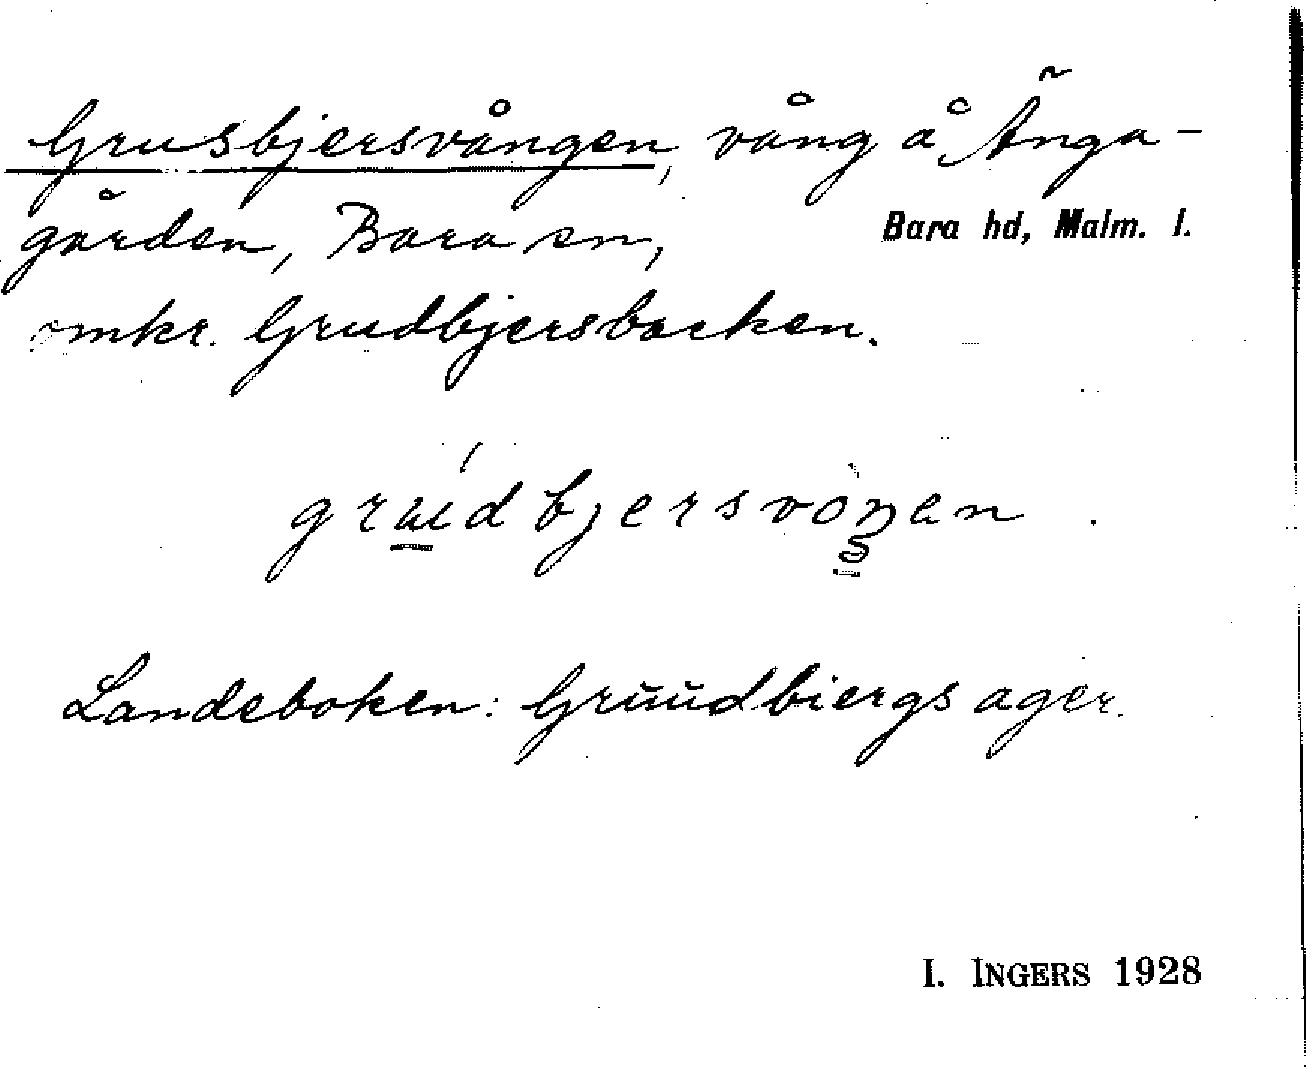 Grusbjersvången, vång å Änga-
gården, Bara sn,
Bara hd, Malm. l.
omkr. Grudbjersbacken.
Landeboken: Gruudbiergs ager.
I. INGERS 1928